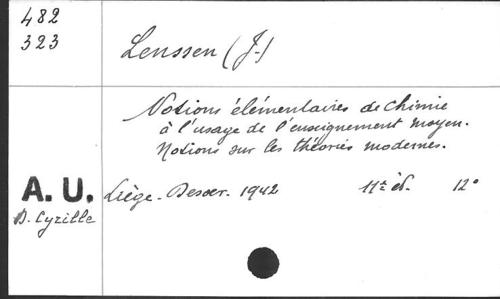 482
323
Lenssen (J.)
Notions élémentaires de chimie
à l'usage de l'enseignement moyen.
Notions sur les théories modernes.
A. U.
D. Cyrille
Liège - Desoer - 1942 11e éd. 12°